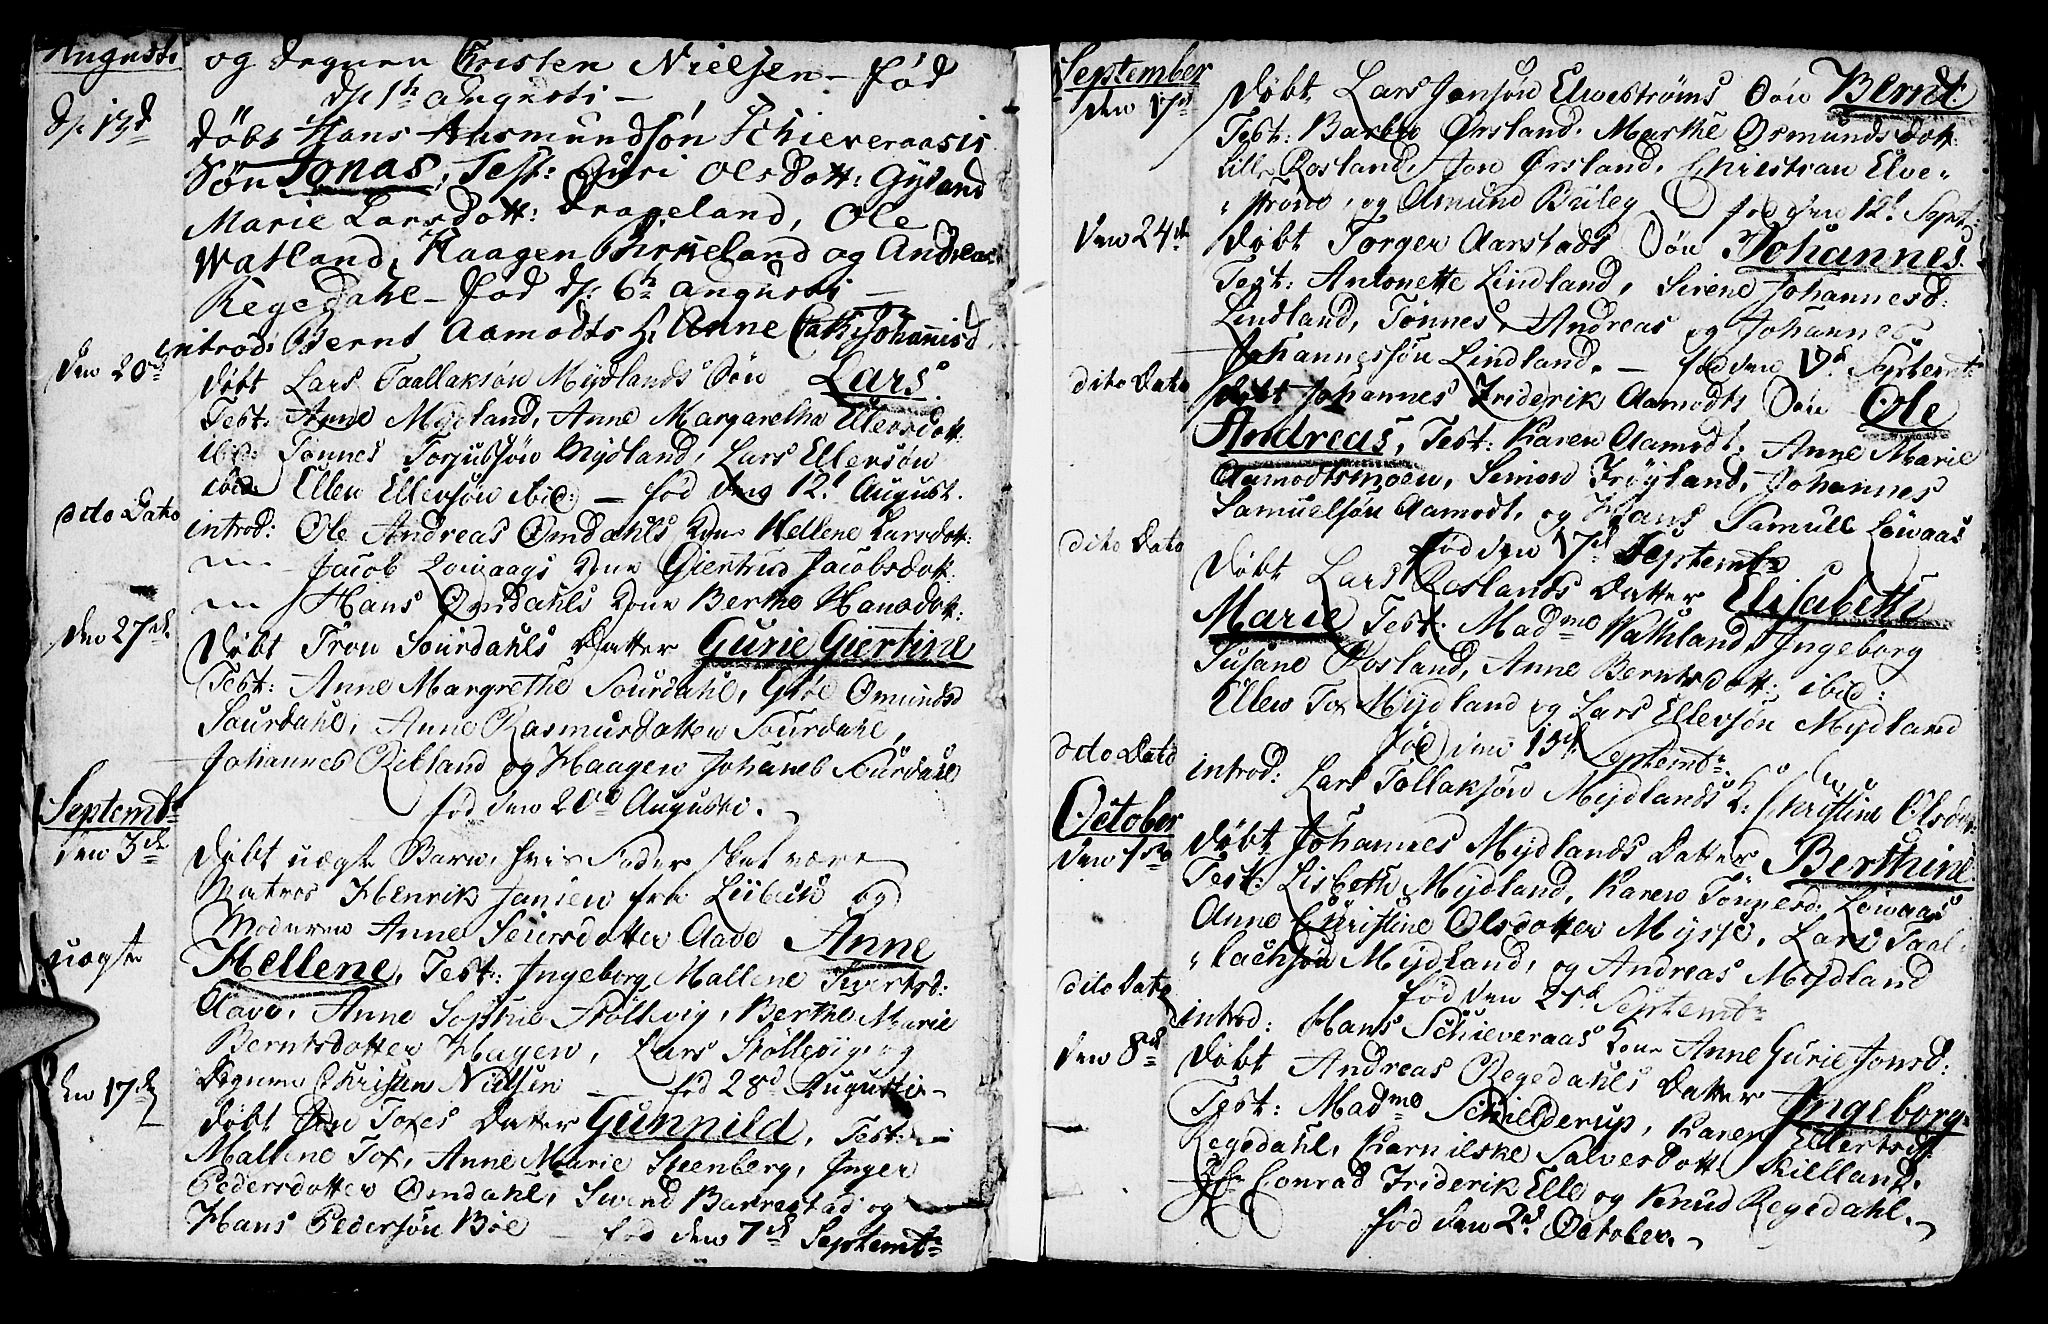 Augusti
og degnen Christen Nielsen – fød
d. 1te Augusti –
d. 13d
døbt Hans Aasmundsøn Schieveraasis
Søn Jonas, Test: Guri Olsdott: Gyland
Marie Larsdott: Drageland, Ole
Watland, Haagen Birkeland og Andreas
Regedahl – fød d. 6te Augusti –
introd: Bernt Aamodts H. Anne Cath: Johannisd
den 20d
døbt Lars Taallaksøn Mydlands Søn Lars
Test: Anne Mydland, Anne Margaretha Ellersdott:
ibid: Tønnes Torjusøn Mydland, Lars Ellersøn
ibid: Ellen Ellersøn ibid: – fød den 12t August.
dito Dato
introd: Ole Andreas Omdahls Kone Hellene Larsdott:
— Jacob Lowaags Kone Giertrud Jacobsdott
— Hans Omdahls Kone Berthe Hansdott:
den 27de
døbt Tron Sourdahls Datter Gurie Giertine
Test: Anne Margrethe Sourdahl, Giøe Omundsd
Sourdahl, Anne Rasmusdatter Sourdahl,
Johannes Rikland og Haagen Johanes Sourdahl
fød den 20d Augusti. –
Septembr
den 3de
døbt uægte Barn, hvis Fader skal være
Matros Henrik Jansen fra Lübeck og
Moderen Anne Seiersdotter Aave Anne
uægte
Hellene, Test: Ingeborg Mallene Sivertsd:
Aave, Anne Sophie Stöllevig, Berthe Marie
Berntsdotter Hagen, Lars Stöllevig og
Degnen Christen Nielsen – fød 28d Augusti –
den 17de
døbt Jon Toxes Datter Gunnild, Test: –
Mallene Tox, Anne Marie Steenberg, Inger
Pedersdotter Omdahl, Swend Barrestad og
Hans Pedersøn Böe – fød den 7de Septembr
September
den 17de
døbt Lars Jonsøn Elvestrøms Søn Berndt.
Test: Barbro Ørsland, Marthe Osmundsdott:
Lille Rosland, Jon Ørsland, Christian Elve-
strøm, og Amund Buley fød den 12t Sept:
den 24de
døbt Torger Aarstads Søn Johannes
Test: Antonette Lindland, Sirene Johannesd:
Lindland, Tønnes, Andreas og Johannes
Johannessøn Lindland. – fød den 17d Septembr
dito Dato
døbt Johannes Friderik Aamodts Søn Ole
Andreas, Test: Karen Aamodt, Anne Marie
Aamodtsmoen, Simon Frøyland, Johannes
Samuelsøn Aamodt, og Hans Samuel Lowaas
fød den 17d Septembr
dito Dato
døbt Lars Roslands Datter Elisabeth
Marie Test: Madme Wathland, Ingeborg
Susane Rosland, Anne Berntsdott: ibid:
Ellen Tox Mydland og Lars Ellersøn Mydland
fød den 13d Septembr
dito Dato
introd: Lars Tollaksøn Mydlands K: Christine Olsdotr
October
den 1ste
døbt Johannes Mydlands Datter Berthine
Test: Lisbeth Mydland, Karen Tønnesd: Lowaas
Anne Christine Olsdotter Mysse, Lars Taal-
lachsøn Mydland, og Andreas Mydland
fød den 25d Septembr
dito Dato
introd: Hans Schieveraas Kone Anne Gurie Jonsd:
den 8de
døbt Andreas Regedahls Datter Ingeborg
Test: Madme Schielderup, Karen Ellertsd:
Regedahl, Karnilske Salvesdott: Kielland,
Hr Conrad Friderik Elle og Knud Regedahl. –
fød den 2d October. –